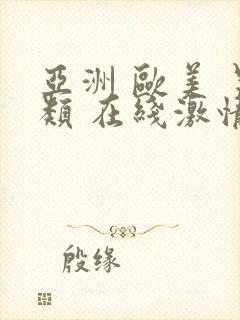 亞洲 歐美
類 在线激情
殷缘